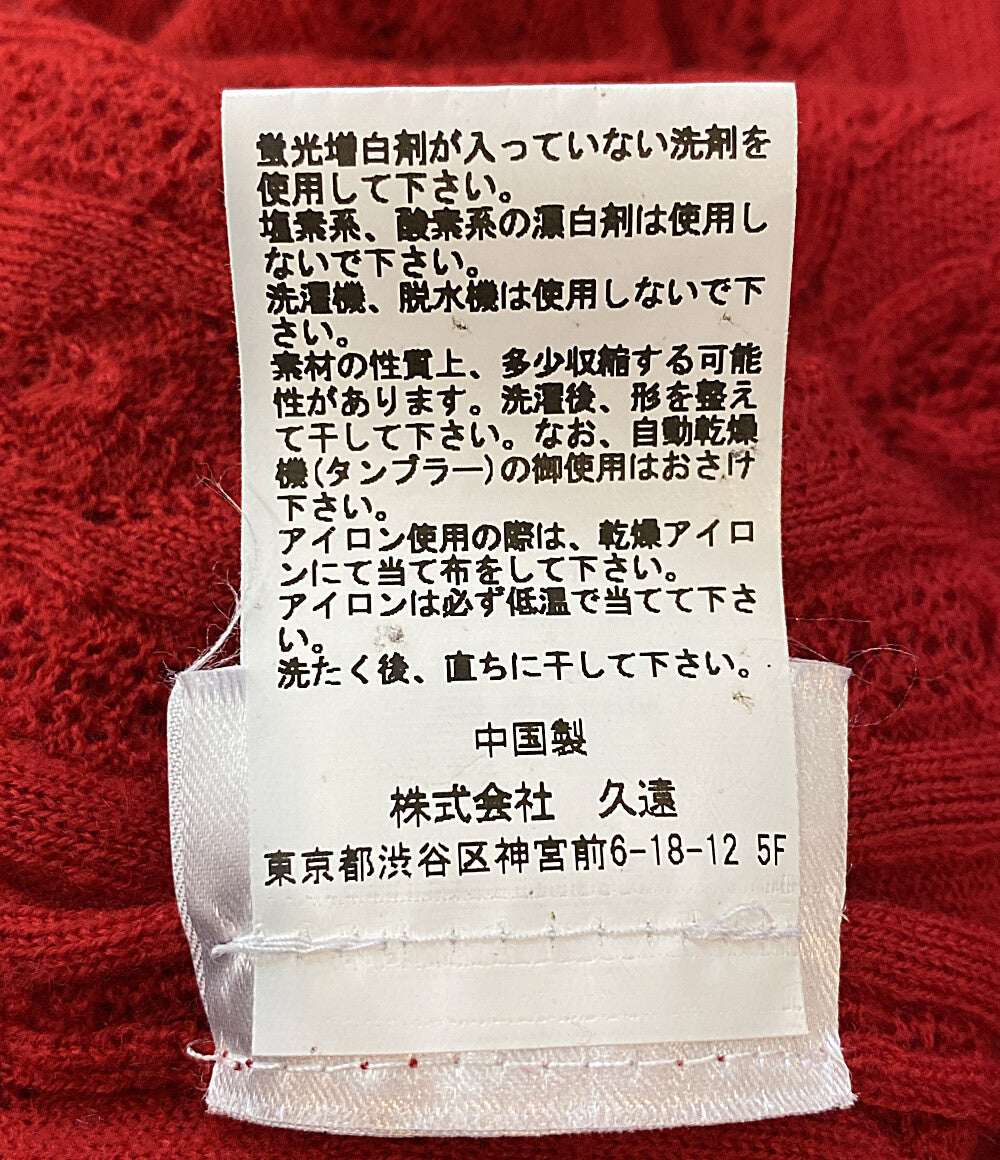 蛍光増白剤が入っていない洗剤を
使用して下さい。
塩素系、酸素系の漂白剤は使用し
ないで下さい。
洗濯機、脱水機は使用しないで下
さい。
素材の性質上、多少収縮する可能
性があります。洗濯後、形を整え
て干して下さい。なお、自動乾燥
機(タンブラー)の御使用はおさけ
下さい。
アイロン使用の際は、乾燥アイロ
ンにて当て布をして下さい。
アイロンは必ず低温で当てて下さ
い。
洗たく後、直ちに干して下さい。
中国製
株式会社 久遠
東京都渋谷区神宮前6-18-12 5F